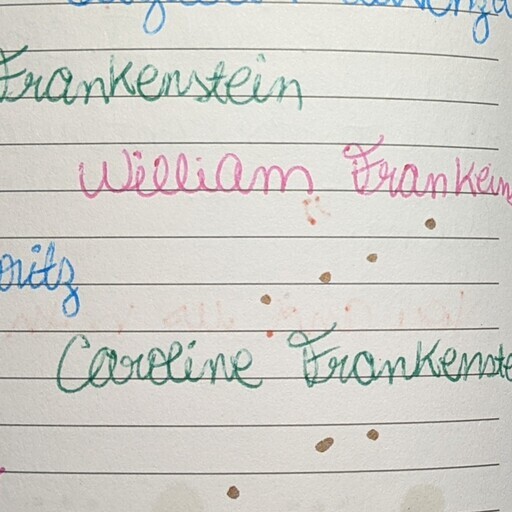 Frankenstein
William Frankein
oritz
Caroline Frankenste